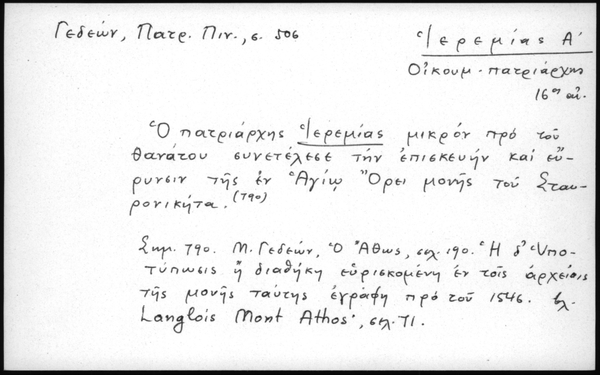 Γεδεών, Πατρ. Πιν., σ. 506
Ἱερεμίας Α΄
Οἰκουμ. πατριάρχης
16ος αἰ.
Ὁ πατριάρχης Ἱερεμίας μικρόν πρό τοῦ
θανάτου συνετέλεσε τήν ἐπισκευήν καί εὔ-
ρυνσιν τῆς ἐν Ἁγίῳ Ὄρει μονῆς τοῦ Σταυ-
ρονικήτα. (790)
Σημ. 790. Μ. Γεδεών, Ὁ Ἄθως, σελ. 190. Ἡ δ' Ὑπο-
τύπωσις ἤ διαθήκη εὑρισκομένη ἐν τοῖς ἀρχείοις
τῆς μονῆς ταύτης ἐγράφη πρό τοῦ 1546. βλ.
Langlois Mont Athos, σελ. 71.